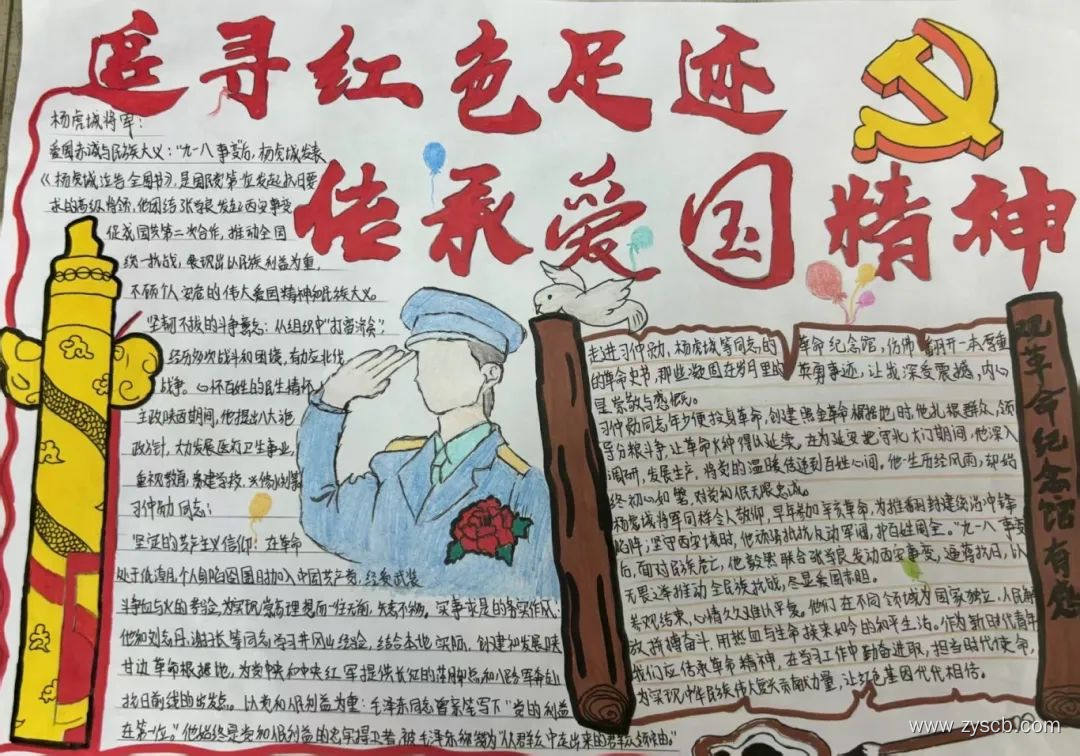 追寻红色足迹
传承爱国精神
杨虎城将军：
爱国赤诚与民族大义："九一八事变"后，杨虎城发表
《杨虎城泣告全国书》，是国民党第一位发起抗日要
求的高级将领，他团结张学良发起西安事变
促成国共第二次合作，推动全国
统一抗战，展现出以民族利益为重，
不顾个人安危的伟大爱国精神和民族大义。
坚韧不拔的斗争意志：从组织中"打富济会"，
经历多次战斗和困境，有力左北伐
战争。心怀百姓的民生情怀
主政陕西期间，他提出八大施
政方针，大力发展医疗卫生事业，
重视教育，兴建学校，
习仲勋同志：
坚定的共产主义信仰：在革命
处于低潮且个人身陷囹圄日加入中国共产党，经受武装
斗争血与火的考验，为实现崇高理想而一往无前，矢志不渝。实事求是的务实作风：
他和刘志丹、谢子长等同志学习井冈山经验，结合本地实际，创建和发展陕
甘边革命根据地，为党中央和中央红军提供长征的落脚点和八路军奔赴
抗日前线的出发点。以党和人民利益为重：毛泽东同志曾亲笔写下"党的利益
在第一位。"他始终是党和人民利益的忠实捍卫者，被毛泽东称赞为"从群众中走出来的群众领袖。"
走进习仲勋、杨虎城等同志的革命纪念馆，仿佛翻开一本厚重
的革命史书，那些凝固在岁月里的英勇事迹，让我深受震撼，内心
是崇敬与感慨。
习仲勋同志年少便投身革命，创建照金革命根据地时，他扎根群众，领
导分粮斗争，让革命火种得以延续，在为延安把守北大门期间，他深入
调研，发展生产，将党的温暖传递到百姓心间，他一生历经风雨，却始
终初心如磐，对党和人民无限忠诚。
杨虎城将军同样令人敬仰，早年参加辛亥革命，为推翻封建统治冲锋
陷阵；坚守西安城时，他顽强抵抗反动军阀，护百姓周全。"九一八事变
后，面对民族危亡，他毅然联合张学良发动西安事变，逼蒋抗日，以
无畏之姿推动全民族抗战，尽显爱国赤胆。
参观结束，心情久久难以平复。他们在不同领域为国家独立、人民解
放拼搏奋斗，用热血与生命换来如今的和平生活。作为新时代青年
我们应传承革命精神，在学习工作中勤奋进取，担当时代使命，
为实现中华民族伟大复兴贡献力量，让红色基因代代相传。
观革命纪念馆有感
www.zyscb.com